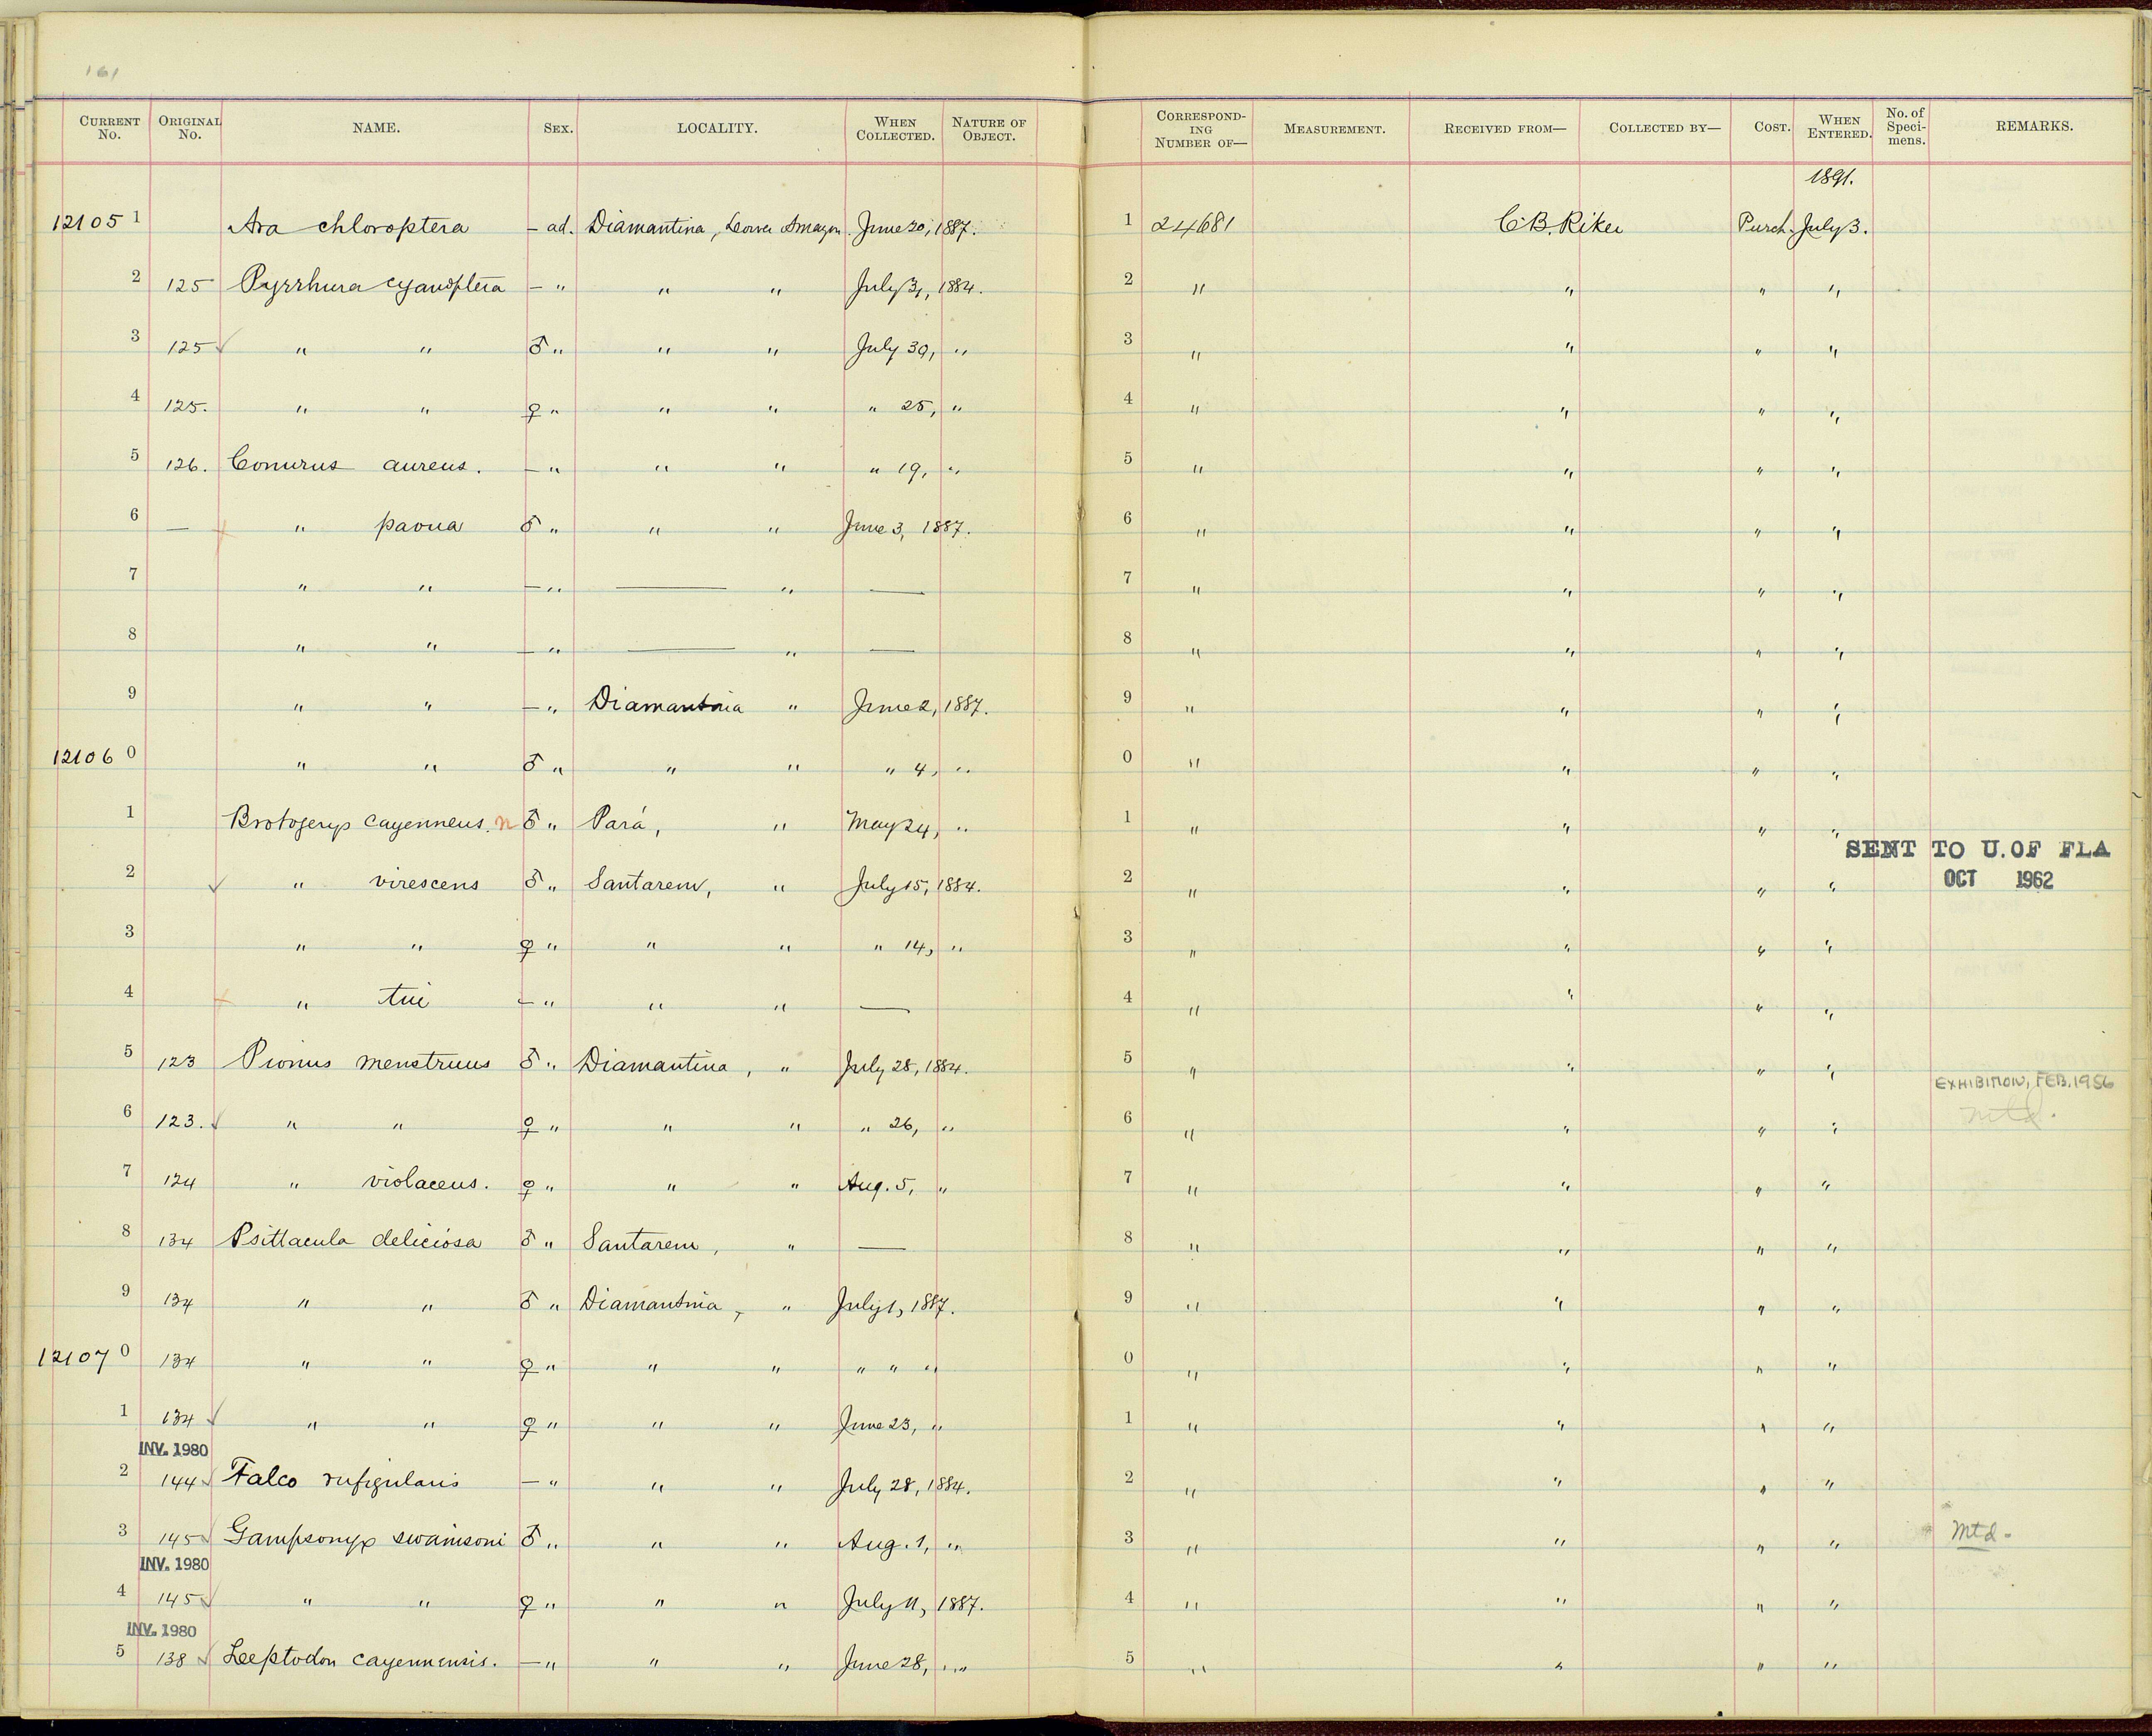 161
CURRENT No. ORIGINAL No. NAME. SEX. LOCALITY. WHEN COLLECTED. NATURE OF OBJECT. CORRESPONDING NUMBER OF— MEASUREMENT. RECEIVED FROM— COLLECTED BY— COST. WHEN ENTERED. No. of Specimens. REMARKS.
1891.
12105 1 Ara chloroptera — ad. Diamantina, Lower Amazon. June 20, 1887. 1 24681 C.B. Riker Purch. July 3.
2 125 Pyrrhura cyanoptera — " " " July 31, 1884. 2 " " " "
3 125 ✓ " " ♂ " " " July 30, " 3 " " " "
4 125. " " ♀ " " " " 25, " 4 " " " "
5 126. Conurus aureus. — " " " " 19, " 5 " " " "
6 — " pavua ♂ " " " June 3, 1887. 6 " " " "
7 " " — " — " — 7 " " " "
8 " " — " — " — 8 " " " "
9 " " — " Diamantina " June 2, 1887. 9 " " " "
12106 0 " " ♂ " " " " 4, " 0 " " " "
1 Brotogerys cayenneus. n ♂ " Pará, " May 24, " 1 " " " "
SENT TO U. OF FLA
OCT 1962
2 ✓ " virescens ♂ " Santarem, " July 15, 1884. 2 " " " "
3 " " ♀ " " " " 14, " 3 " " " "
4 " tui — " " " — 4 " " " "
5 123 Pionus menstruus ♂ " Diamantina, " July 28, 1884. 5 " " " "
EXHIBITION, FEB. 1956
6 123. ✓ " " ♀ " " " " 26, " 6 " " " " mtd.
7 124 " violaceus. ♀ " " " Aug. 5, " 7 " " " "
8 134 Psittacula deliciosa ♂ " Santarem, " — 8 " " " "
9 134 " " ♂ " Diamantina, " July 1, 1887. 9 " " " "
12107 0 134 " " ♀ " " " " " " 0 " " " "
1 134 ✓ " " ♀ " " " June 23, " 1 " " " "
INV. 1980
2 144 ✓ Falco rufigularis — " " " July 28, 1884. 2 " " " "
3 145 ✓ Gampsonyx swainsoni ♂ " " " Aug. 1, " 3 " " " " Mtd.
INV. 1980
4 145 ✓ " " ♀ " " " July 11, 1887. 4 " " " "
INV. 1980
5 138 ✓ Leptodon cayennensis. — " " " June 28, " 5 " " " "